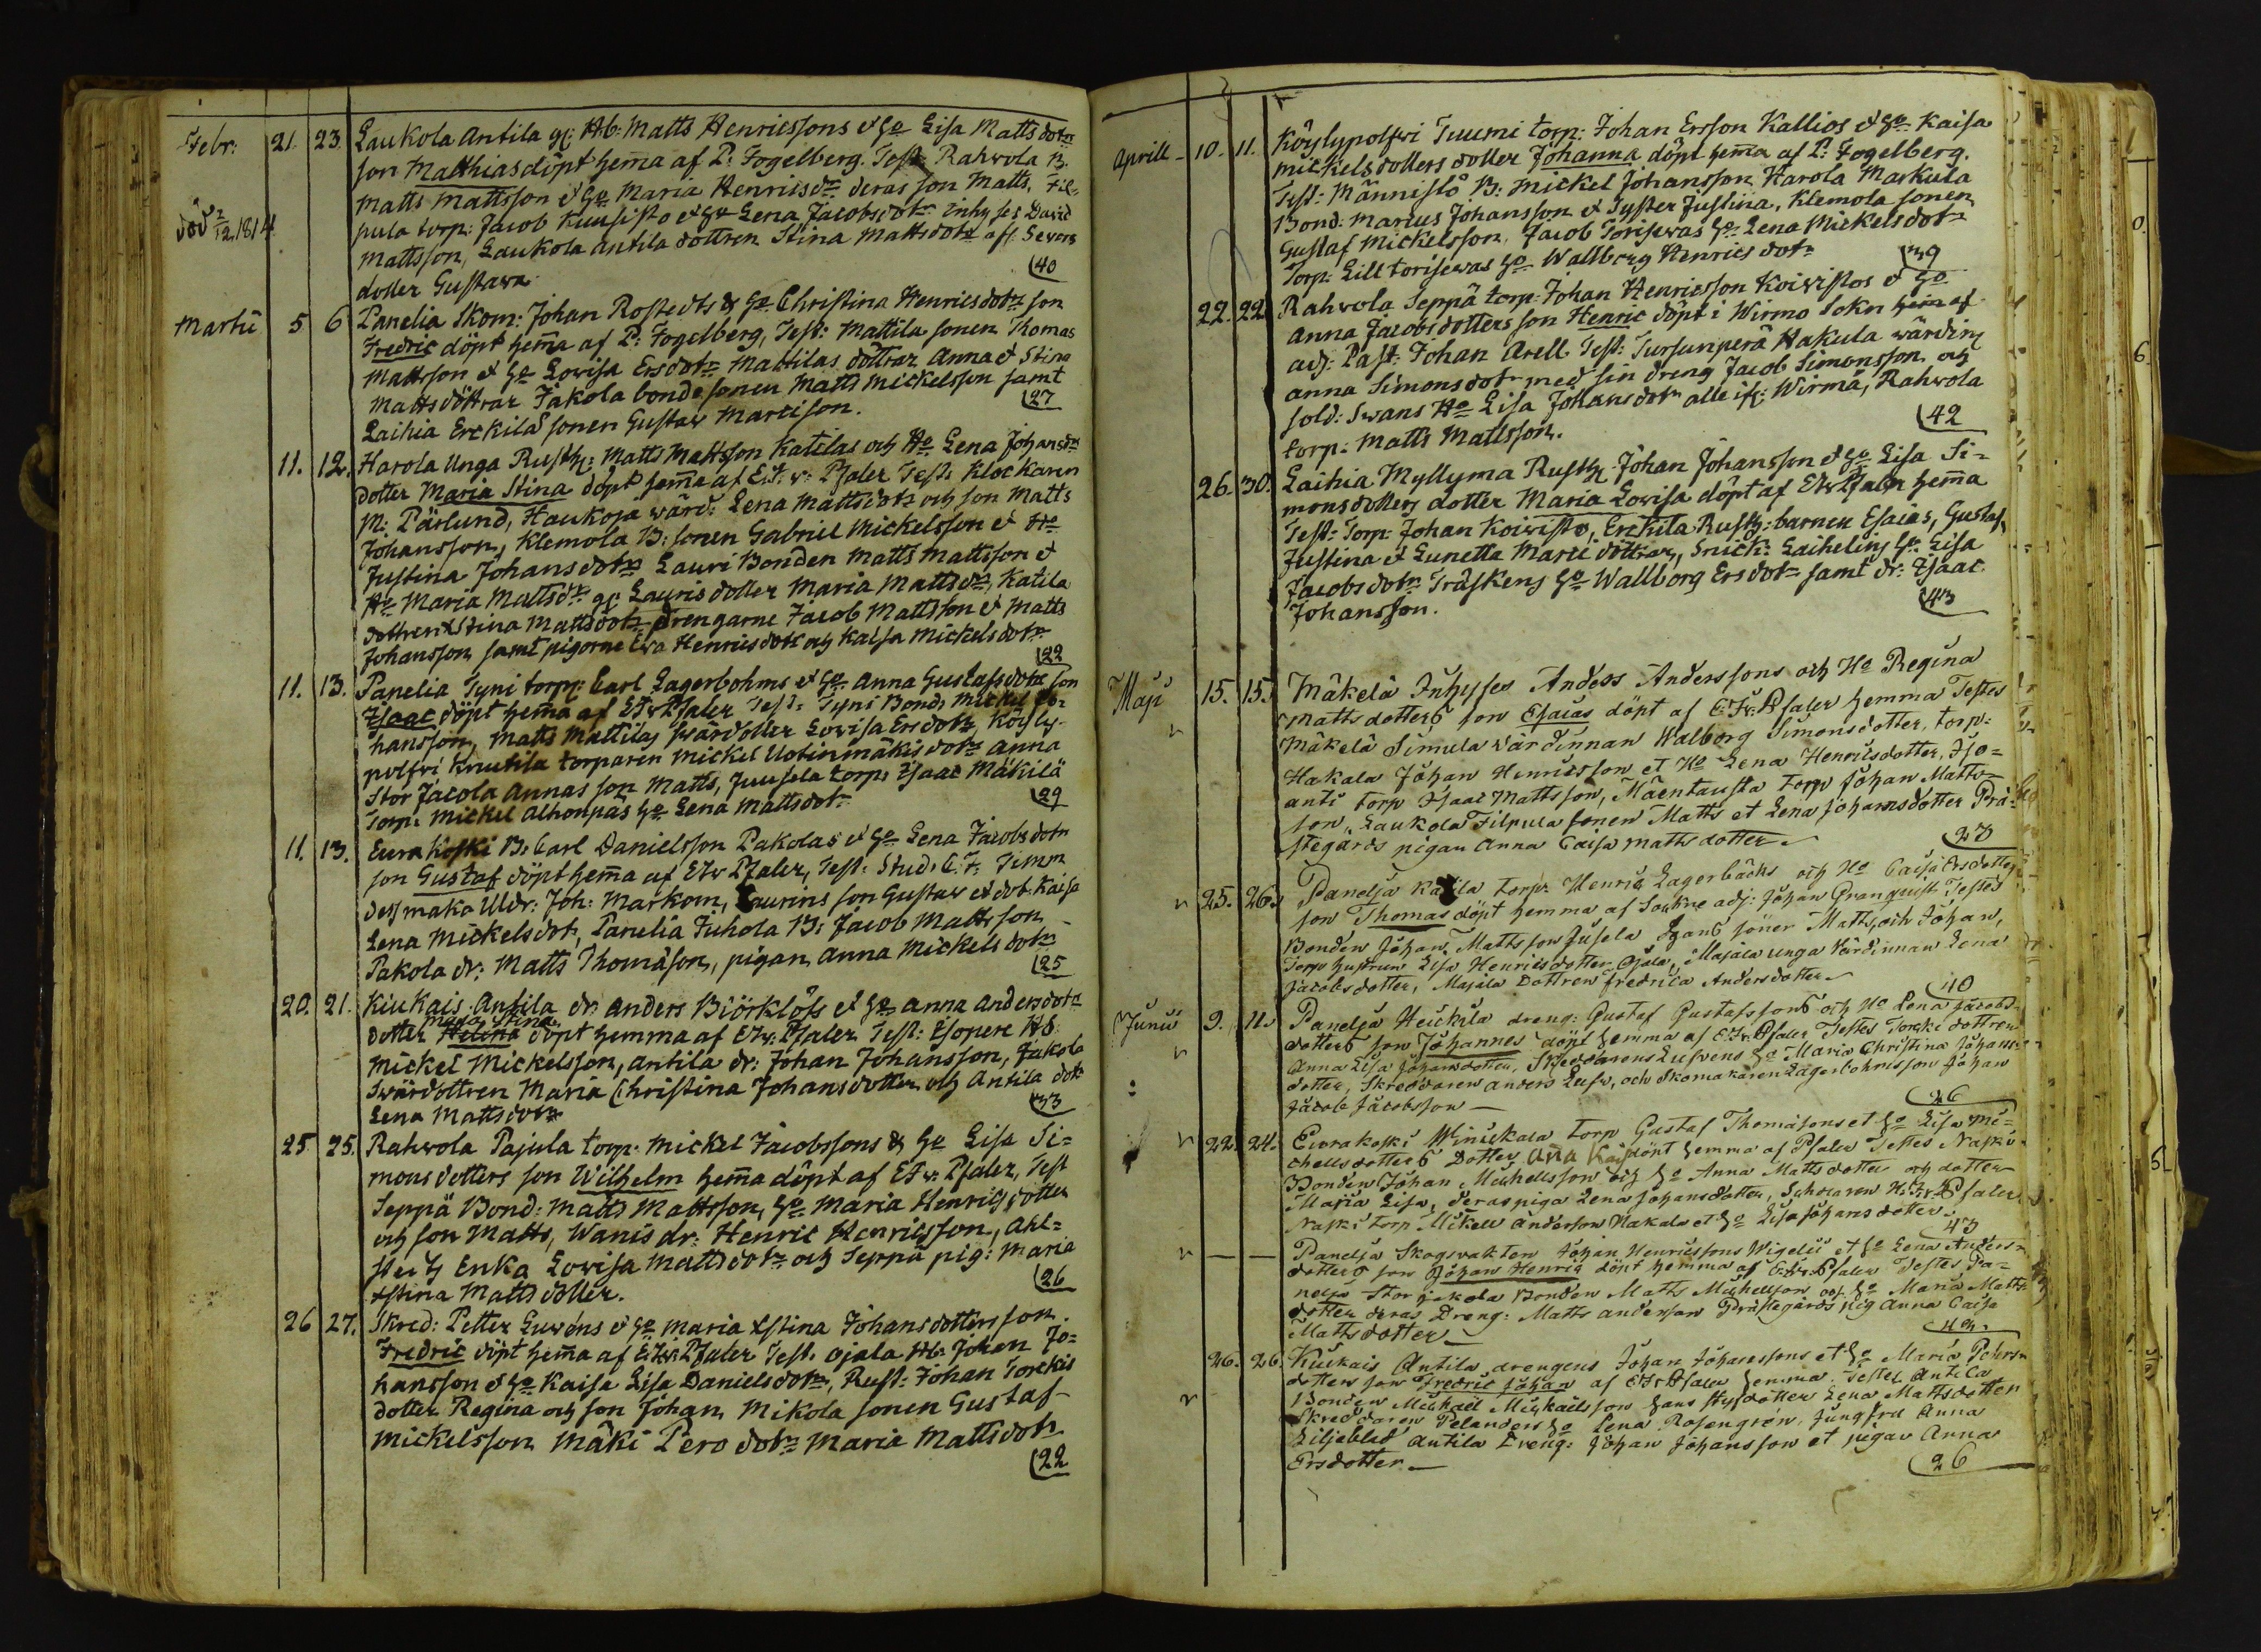 Febr: 21. 23. Laukola Antila gl: Hb: Matts Henricssons & ho Lisa Mattsdotrs
son Matthias döpt hema af P: Fogelberg. Test: Rahvola B.
Matts Mattsson & ho Maria Henricsdr deras son Matts, Fil-
pula torp: Jacob Kuusisto & ho Lena Jacobsdotr Inhyses David
död 2/12 1814
Mattsson, Laukola Antila dottren Stina Mattsdotr
dotter Gustava.
40
Martii 5 6 Panelia Skom: Johan Rostedts & ho Christina Henricsdotrs son
Fredric döpt hema af P: Fogelberg, Test: Mattila sonen Thomas
Mattsson & ho Lovisa Ersdotr Mattilas döttrar Anna & Stina
Matts döttrar Jakola bonde sonen Matts Mickelsson samt
Laihia Erckilä sonen Gustav Marcison.
27
11. 12. Harola Unga Rusth: Matts Mattsson Katilas och Ho Lena Johansdrs
dotter Maria Stina döpt hema af E: Fr: Pfaler Test: Klockaren
M: Pärlund, Haukoja värd: Lena Mattsdotr och son Matts
Johansson, Klemola B: sonen Gabriel Mickelsson & Ho
Justina Johansdotr Lauri Bonden Matts Mattsson &
Ho Maria Mattsdr gl: Lauris dotter Maria Mattsdr, Katila
dottren Stina Mattsdotr drengarne Jacob Mattsson & Matts
Johansson samt pigorne Eva Henricsdotr och Kaisa Mickelsdotr
22
11. 13. Panelia Tyni torp: Carl Lagerbohms & ho Anna Gustafsdotrs son
Isaac döpt hema af EFr Pfaler Test: Tyni Bond: Mickel Jo-
hansson, Matts Mattilas svärdotter Lovisa Ersdotr, Köyly-
polfvi Knutila torparen Mickel Uotinmäkis dotr Anna
Stor Jacola Annas son Matts, Juusela torp: Isaac Mäkilä
Torp: Mickel Alhonpäs ho Lena Mattsdotr
29
11. 13. Eura koski B: Carl Danielsson Pakolas & ho Lena Jacobsdotrs
son Gustaf döpt hema af EFr Pfaler, Test: Stud: C: F: Timm
dess maka Uldr: Joh: Markom, Laurins son Gustav & dotr Kaisa
Lena Mickelsdotr, Panelia Juhola B: Jacob Mattsson
Pakola dr: Matts Thomasson, pigan Anna Mickelsdotr
25
20. 21. Kiukais Antila dr Anders Biörklöfs & ho Anna Andersdotrs
Maria Stina
dotter Helena döpt hemma af EFr: Pfaler Test: Isopere Hb:
Mickel Mickelsson, Antila dr: Johan Johansson, Jakola
Svärdottren Maria Christina Johansdotter och Antila dotr
Lena Mattsdotr
33
25. 25. Rahvola Pajula torp: Mickel Jacobssons & ho Lisa Si=
monsdotters son Wilhelm hema döpt af EFr: Pfaler, Test
Seppä Bond: Matts Mattsson, ho Maria Henrics dotter
och son Matts, Wanis dr: Henric Henricsson, Ahl=
stedts Enka Lovisa Mattsdotr och Seppä pig: Maria
Xstina Matts dotter.
26
26 27. Skred: Petter Luvéns & ho Maria Xstina Johansdotters son
Fredric döpt hema af EFr: Pfaler Test: Ojala Hb: Johan Jo=
hansson & ho Kaisa Lisa Danielsdotr, Rust: Johan Torckis
dotter Regina och son Johan, Mikola sonen Gustaf
Mickelsson Mäki Pero dotr Maria Mattsdotr
22
Aprill 10. 11. Köylypolfvi Tuumi torp: Johan Ersson Kallios & ho Kaisa
Mickelsdotters dotter Johanna döpt hema af P: Fogelberg.
Test: Männistö B: Mickel Johansson Harola Markula
Bond: Marcus Johansson & Syster Justina, Klemola sonen
Gustaf Mickelsson, Jacob Torisevas ho Lena Mickelsdotr
Torp: Lill torisevas ho Wallborg Henrics dotr
39
22. 22. Rahvola Seppä torp: Johan Henricsson Koivistos & ho
Anna Jacobsdotters son Henric döpt i Wirmo Sokn hema af
adj: Past: Johan Arell. Test: Tursunperä Hakula värdin
Anna Simonsdotr med sin dreng Jacob Simonsson och
sold: Svans Ho Lisa Johansdotr alle ifr: Wirmå, Rahvola
torp: Matts Mattsson.
42
26. 30. Laihia Myllyma Rusth: Johan Johansson & ho Lisa Si=
monsdotters dotter Maria Lovisa döpt af EFr Pfaler hema
Test: Torp: Johan Koivisto, Erckila Rusth: barnen Esaias, Gustaf
Justina & Lunetta Marci döttrar, Snick: Laihelins ho Lisa
Jacobsdotr Träskens ho Wallborg Ersdotr samt dr: Isaac
Johansson.
43
Maji 15. 15. Mäkelä Inhyses Anders Anderssons och Ho Regina
Mattsdotters son Esaias döpt af E: Fr: Pfaler hemma Testes
Mäkelä Simula värdinnan Walborg Simonsdotter, torp:
Hakala Johan Henricsson et Ho Lena Henricsdotter, Iso=
anti torp Isaac Mattsson, Mäentausta torp Johan Matts-
son, Laukola Filpula sonen Matts et Lena Johansdotter Prä-
stegårds pigan Anna Caisa Mattsdotter
23
25. 26. Panelja Katila torp: Henric Lagerbäcks och Ho Caisa Ersdotters
son Thomas döpt hemma af Sockne adj: Johan Granquist Testes
Bonden Johan Mattsson Jusela hans söner Matts, och Johan,
Torp hustrun Lisa Henricsdotter Ojala, Majala unga Värdinnan Lena
Jacobsdotter, Majala Dottren Fredrica Andersdotter
40
Junii 9. 11. Panelja Heickilä dreng: Gustaf Gustafssons och Ho Lena Jacobs-
dotters son Johannes döpt hemma af E: Fr: Pfaler Testes Torcki dottren
Anna Lisa Johansdotter, Skreddarens Lufvens ho Maria Christina Johans-
dotter, Skreddaren Anders Lufv, och Skomakaren Lagerbohms son Johan
Jacob Jacobsson
26
22. 24. Eurakoski torp Gustaf Thomasons et ho Lisa Mi-
chellsdotters Dotter Ana Kais döpt hemma af Pfaler Testes Naski
Bonden Johan Michellsson och ho Anna Mattsdotter och dotter
Maria Lisa, deras piga Lena Johansdotter, H: Fr: Pfaler
Naski torp Mikell Andersson Hakala et ho Lisa Johansdotter
43
— — Panelja Skogsvakten Johan Henricssons Wigelii et ho Lena Anders-
dotters son Johan Henric döpt hemma af E: Fr: Pfaler Testes Pa-
nelja Stor jakola Bonden Matts Michellsson och ho Maria Matts-
dotter deras Dreng: Matts Andersson Prästegårds pig Anna Caisa
Mattsdotter
42.
26. 26. Kiukais Antila drengens Johan Johanssons et ho Maria Pehrs-
dotters son Fredric Johan af EFr Pfaler hemma. Testes Antila
Bonden Michaël Michaëlsson hans Styfdotter Lena Mattsdotter
Skreddaren Pelanders ho Lena Rosengren, Jungfru Anna
Liljeblad Antila Dreng: Johan Johansson et pigan Anna
Ersdotter
26